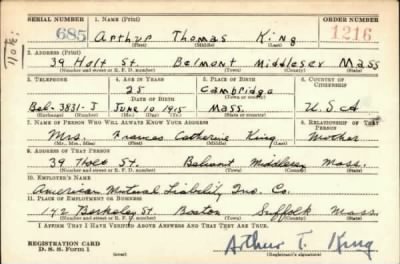 SERIAL NUMBER 1. NAME (Print) ORDER NUMBER
685 Arthur Thomas King 1216
(First) (Middle) (Last)
2. ADDRESS (Print)
39 Holt St. Belmont Middlesex Mass
(Number and street or R. F. D. number) (Town) (County) (State)
3. TELEPHONE 4. AGE IN YEARS 5. PLACE OF BIRTH 6. COUNTRY OF CITIZENSHIP
25 Cambridge
DATE OF BIRTH (Town or county)
Bel-3831-J June 10 1915 Mass. U.S.A
(Exchange) (Number) (Mo.) (Day) (Yr.) (State or country)
7. NAME OF PERSON WHO WILL ALWAYS KNOW YOUR ADDRESS 8. RELATIONSHIP OF THAT PERSON
Mrs. Frances Catherine King Mother
(Mr., Mrs., Miss) (First) (Middle) (Last)
9. ADDRESS OF THAT PERSON
39 Holt St. Belmont Middlesex Mass.
(Number and street or R. F. D. number) (Town) (County) (State)
10. EMPLOYER'S NAME
American Mutual Liability Ins. Co.
11. PLACE OF EMPLOYMENT OR BUSINESS
142 Berkeley St. Boston Suffolk Mass.
(Number and street or R. F. D. number) (Town) (County) (State)
I AFFIRM THAT I HAVE VERIFIED ABOVE ANSWERS AND THAT THEY ARE TRUE.
REGISTRATION CARD
D. S. S. Form 1 (over) Arthur T. King
(Registrant's signature)